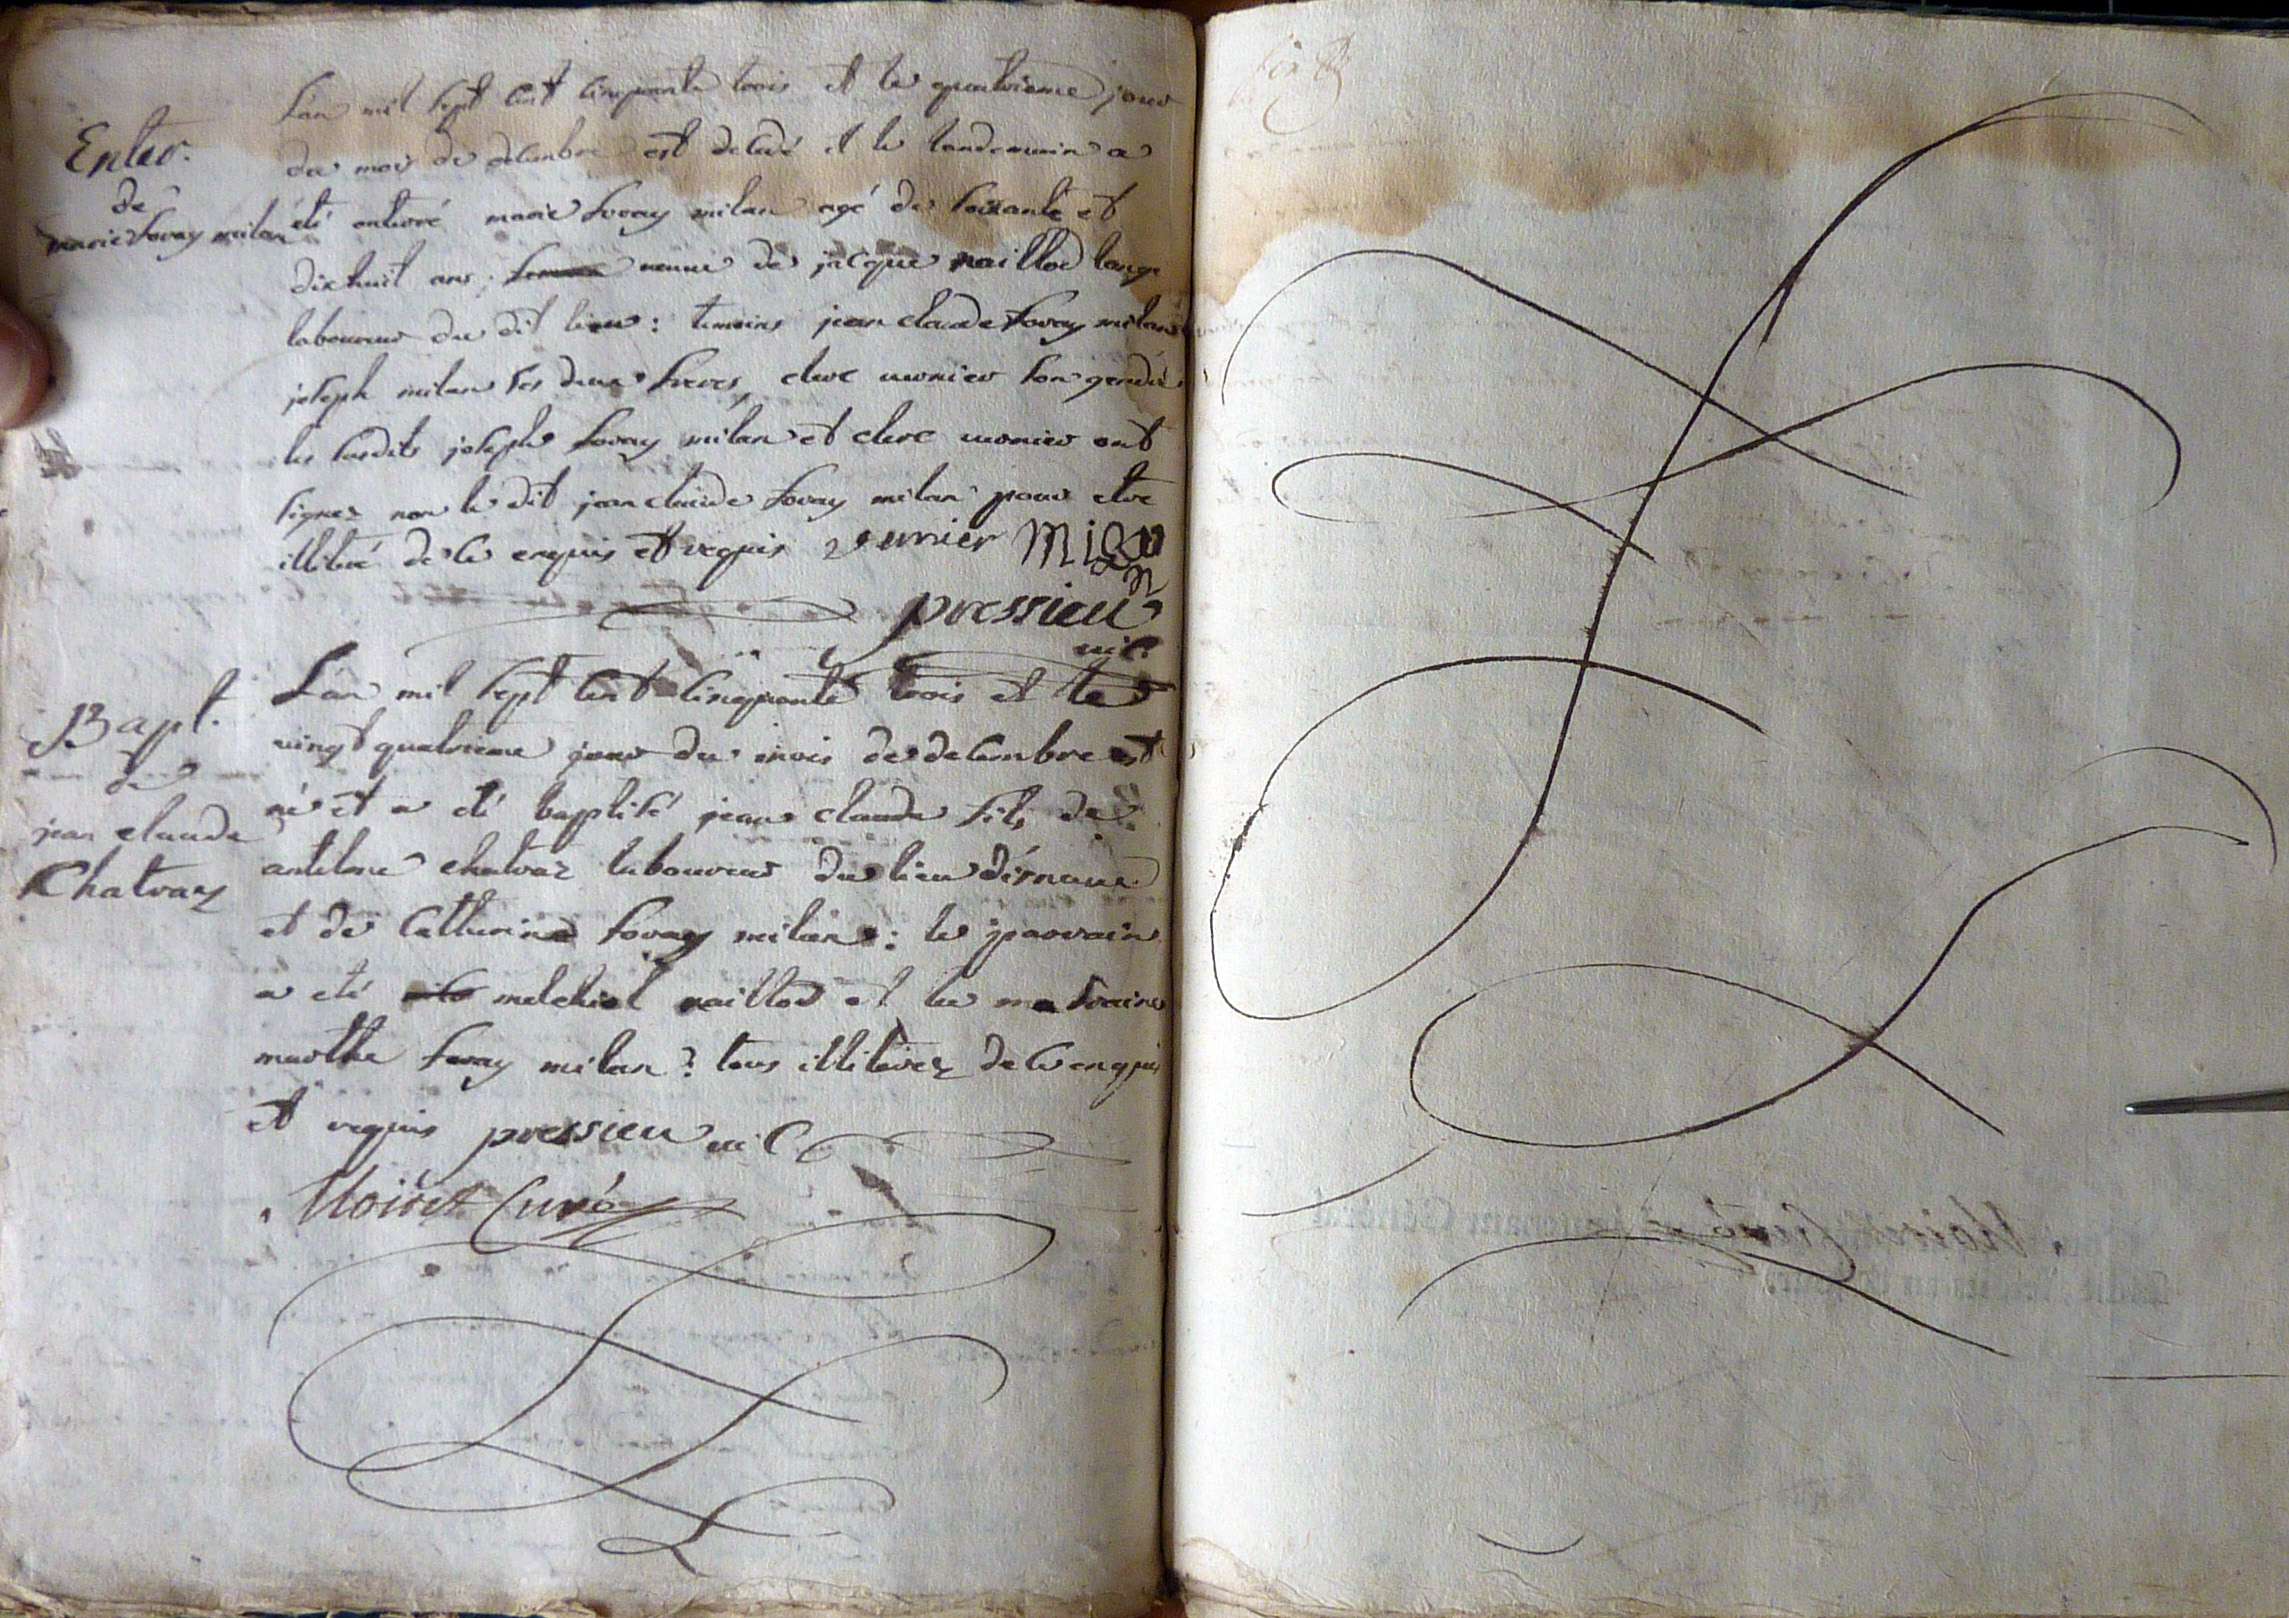 Enter.
de
marie sovay milan
L'an mil sept cent cinquante trois et le quatrieme jour
du mois de decembre est decedé et le landemain a
été enterré marie sovay milan agé de soixante et
dixhuit ans, veuve de jacque naillod
laboureur du dit lieu : temoins jean claude sovay milan
joseph milan ses deux freres, clerc murnier son gendre
les susdits joseph sovay milan et clerc murnier ont
signez non le dit jean claude sovay milan pour etre
illiteré de ce enquis et requis
pressieu
vic.
Bapt.
de
jean claude
Chatray
L'an mil sept cent cinquante trois et le
vingt quatrieme jour du mois de decembre est
né et a eté baptisé jean claude fils de
antelme chatraz laboureur du lieu
et de Catherine sovay milan : le parrain
a eté melchiol naillod et la marraine
marthe sovay milan : tous illiterez de ce enquis
et requis pressieu vic
Curé